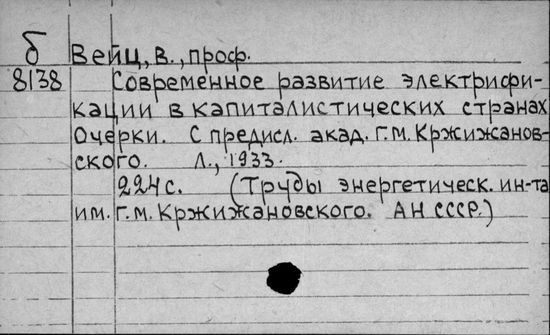 б Вейц, В., проф.
8138 Современное развитие электрифи-
кации в капиталистических странах
Очерки. С предисл. акад. Г.М. Кржижанов-
ского. Л., 1933.
224 с. (Труды энергетическ. ин-та
им. Г.М. Кржижановского. АН СССР.)